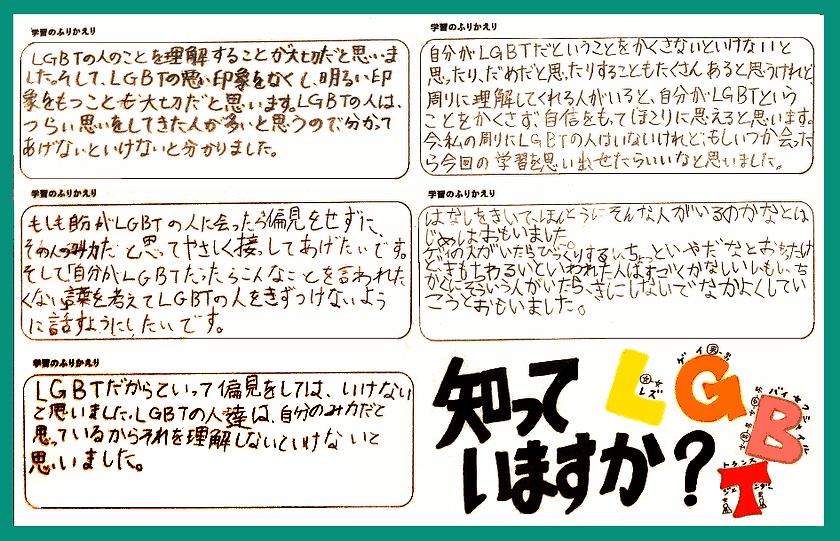 学習のふりかえり
LGBTの人のことを理解することが大切だと思いま
した。そして、LGBTの悪い印象をなくし、明るい印
象をもつことも大切だと思います。LGBTの人は、
つらい思いをしてきた人が多いと思うので分かって
あげないといけないと分かりました。
学習のふりかえり
自分がLGBTだということをかくさないといけないと
思ったり、だめだと思ったりすることもたくさんあると思うけれど、
周りに理解してくれる人がいると、自分がLGBTという
ことをかくさず、自信をもってほこりに思えると思います。
今、私の周りにLGBTの人はいないけれど、もしいつか会った
ら今回の学習を思い出せたらいいなと思いました。
学習のふりかえり
もしも自分がLGBTの人に会ったら偏見をせずに、
その人のみ力だと思ってやさしく接してあげたいです。
そして自分がLGBTだったらこんなことを言われた
くない言葉を考えてLGBTの人をきずつけないよう
に話すようにしたいです。
学習のふりかえり
はなしをきいて、ほんとうにそんな人がいるのかなとは
じめはおもいました。
ゲイの人がいたらびっくりするし、ちょっといやだなとおもったけ
どきもちわるいといわれた人はすごくかなしいしもし、ち
かくにそういう人がいたらきにしないでなかよくしてい
こうとおもいました。
学習のふりかえり
LGBTだからといって偏見をしては、いけない
と思いました。LGBTの人達は、自分のみ力だと
思っているからそれを理解しないといけないと
思いました。
知って
いますか?
LGBT
レズ
ゲイ
バイセクシュアル
トランス
ジェンダー